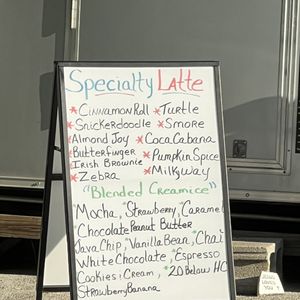 Specialty Latte
*Cinnamon Roll *Turtle
*Snickerdoodle *Smore
*Almond Joy *Coca Cabana
*Butterfinger *Pumpkin Spice
Irish Brownie *Milkyway
*Zebra
"Blended Creamice"
Mocha, Strawberry, Caramel
Chocolate Peanut Butter
Java Chip, Vanilla Bean, Chai
White Chocolate, Espresso
Cookies & Cream, *20 Below HC
Strawberry Banana